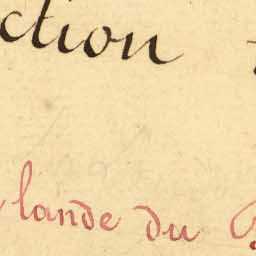 ction
lande du